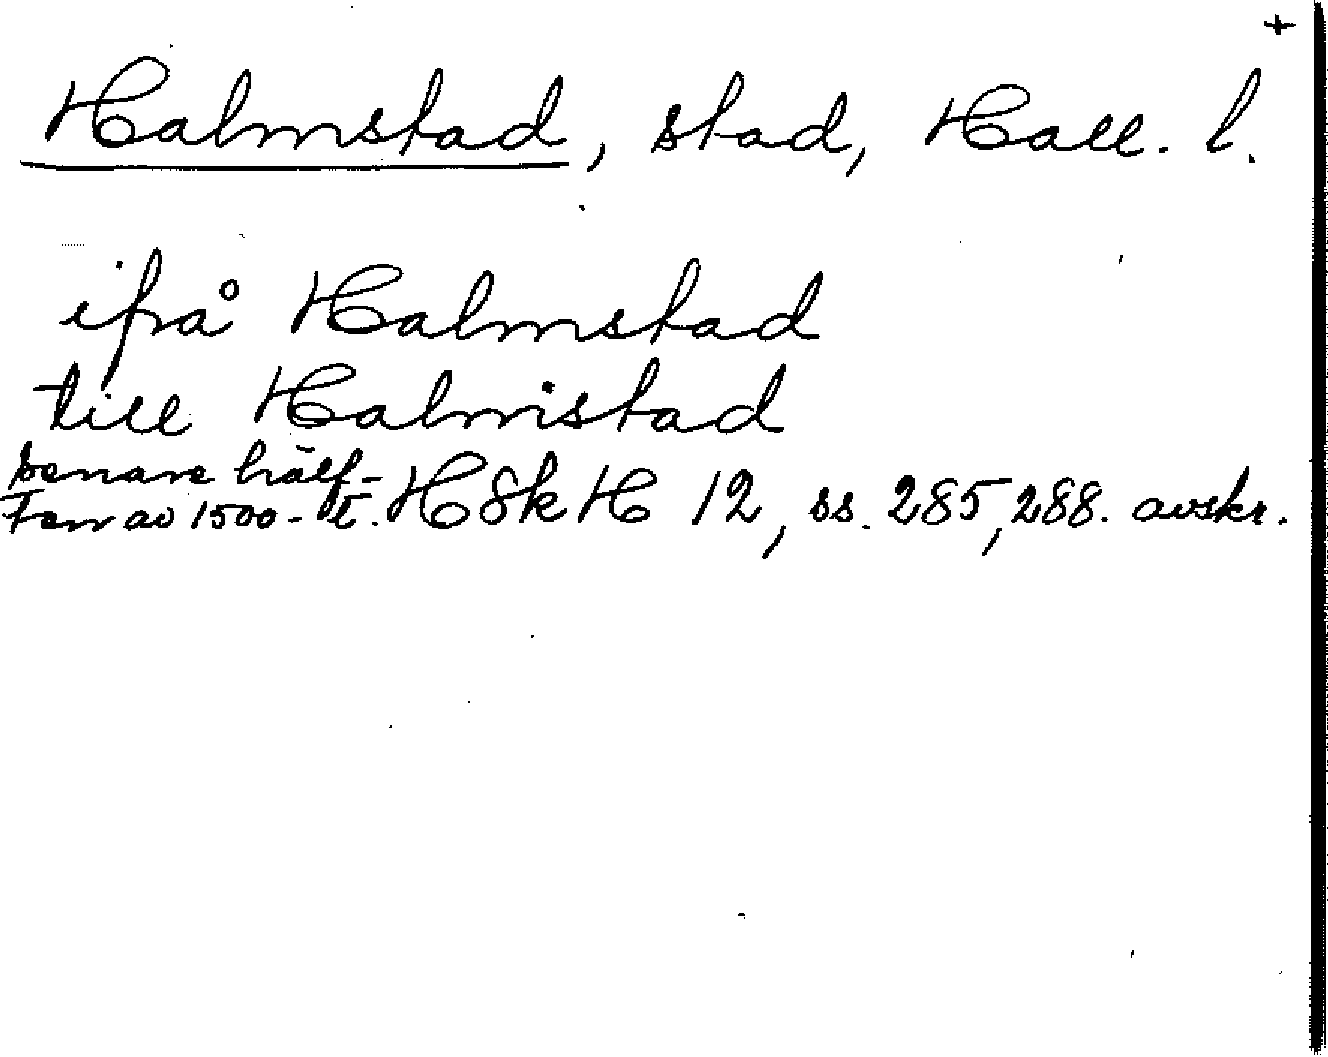 +
Halmstad, stad, Hall. l.
ifrå Halmstad
till Halmstad
senare hälf-
ten av 1500-t. HSkH 12, ss. 285, 288. avskr.